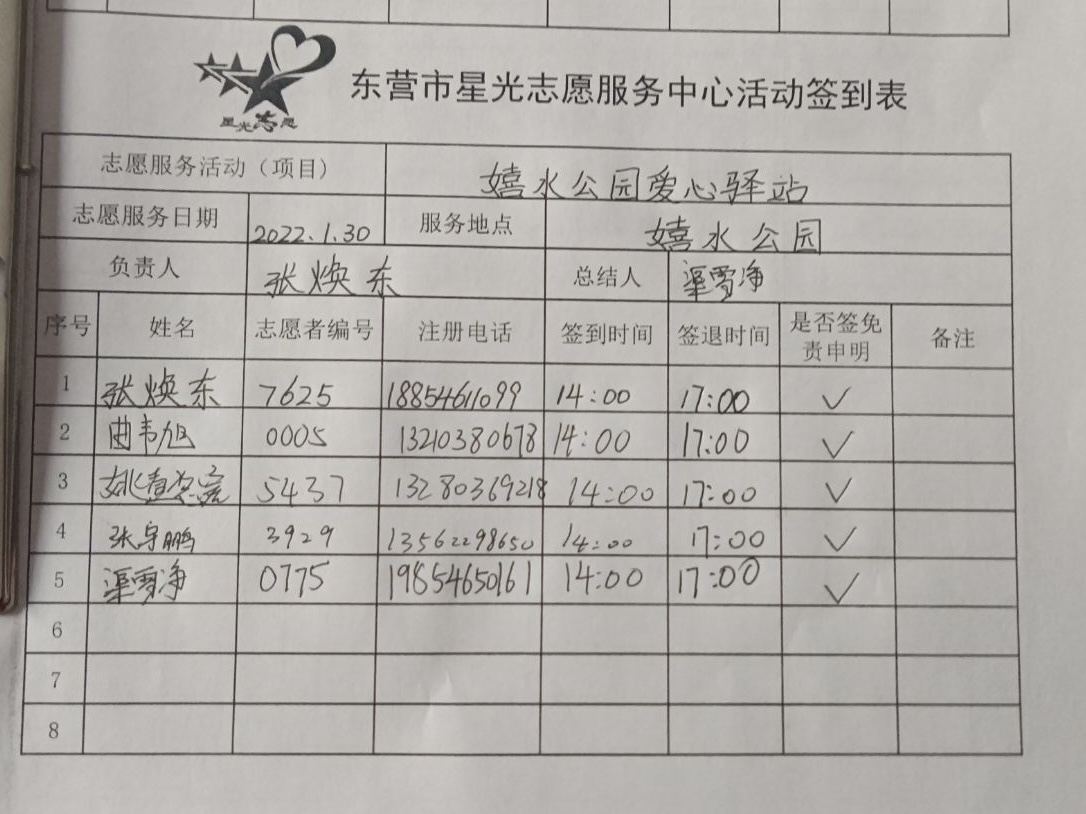 星光志愿
东营市星光志愿服务中心活动签到表
志愿服务活动（项目） 嬉水公园爱心驿站
志愿服务日期 2022.1.30 服务地点 嬉水公园
负责人 张焕东 总结人 渠雪净
序号 姓名 志愿者编号 注册电话 签到时间 签退时间 是否签免责申明 备注
1 张焕东 7625 18854611099 14:00 17:00 ✓
2 曲韦旭 0005 13210380678 14:00 17:00 ✓
3 5437 13280369218 14:00 17:00 ✓
4 张守鹏 3929 13562298650 14:00 17:00 ✓
5 渠雪净 0775 19854650161 14:00 17:00 ✓
6
7
8